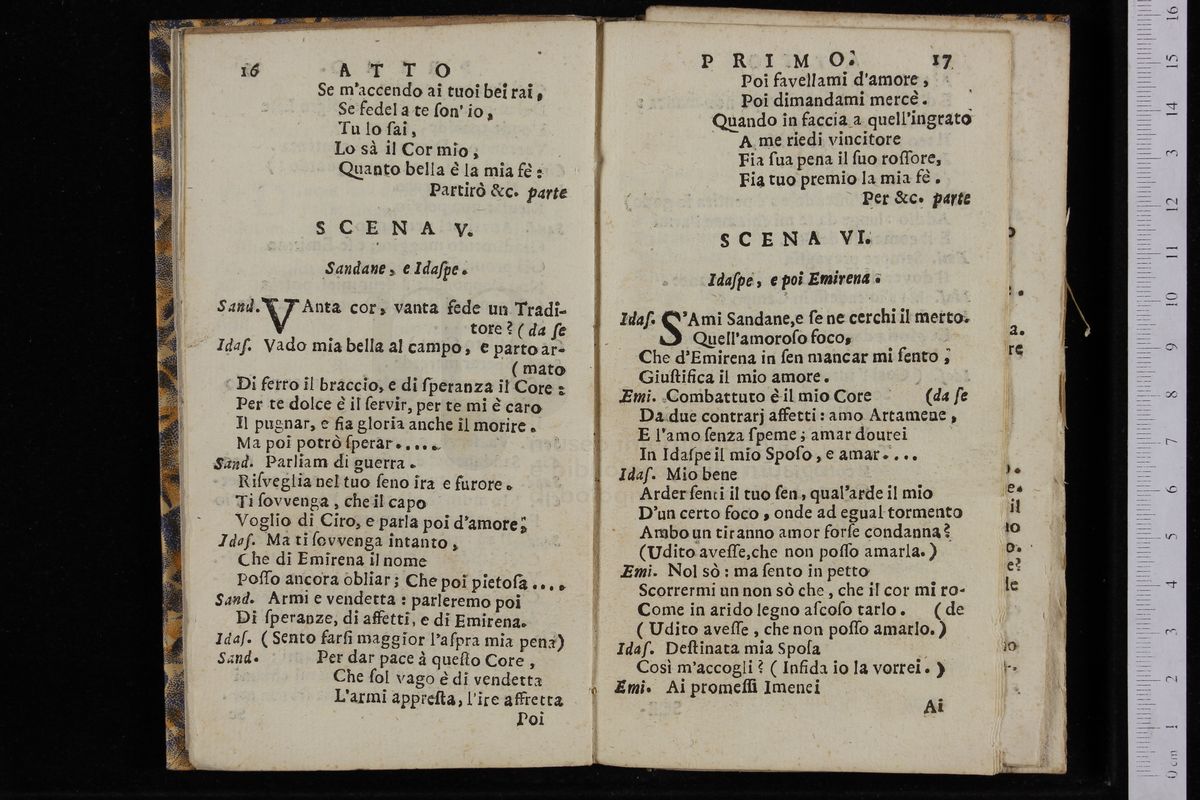 16 ATTO
Se m'accendo ai tuoi bei rai,
Se fedel a te ſon' io,
Tu lo ſai,
Lo sà il Cor mio,
Quanto bella è la mia fè:
Partirò &c. parte
SCENA V.
Sandane, e Idaſpe.
Sand. VAnta cor, vanta fede un Tradi-
tore? (da ſe
Idaſ. Vado mia bella al campo, e parto ar-
(mato
Di ferro il braccio, e di ſperanza il Core:
Per te dolce è il ſervir, per te mi è caro
Il pugnar, e fia gloria anche il morire.
Ma poi potrò ſperar.....
Sand. Parliam di guerra.
Riſveglia nel tuo ſeno ira e furore.
Ti ſovvenga, che il capo
Voglio di Ciro, e parla poi d'amore;
Idaſ. Ma ti ſovvenga intanto,
Che di Emirena il nome
Poſſo ancora obliar; Che poi pietoſa....
Sand. Armi e vendetta: parleremo poi
Di ſperanze, di affetti, e di Emirena.
Idaſ. (Sento farſi maggior l'aſpra mia pena)
Sand. Per dar pace à queſto Core,
Che ſol vago è di vendetta
L'armi appreſta, l'ire affretta
Poi
PRIMO. 17
Poi favellami d'amore,
Poi dimandami mercè.
Quando in faccia a quell'ingrato
A me riedi vincitore
Fia ſua pena il ſuo roſſore,
Fia tuo premio la mia fè.
Per &c. parte
SCENA VI.
Idaſpe, e poi Emirena.
Idaſ. S'Ami Sandane,e ſe ne cerchi il merto.
Quell'amoroſo foco,
Che d'Emirena in ſen mancar mi ſento,
Giuſtifica il mio amore.
Emi. Combattuto è il mio Core (da ſe
Da due contrarj affetti: amo Artamene,
E l'amo ſenza ſpeme; amar dourei
In Idaſpe il mio Spoſo, e amar....
Idaſ. Mio bene
Arder ſenti il tuo ſen, qual'arde il mio
D'un certo foco, onde ad egual tormento
Ambo un tiranno amor forſe condanna?
(Udito aveſſe,che non poſſo amarla.)
Emi. Nol sò: ma ſento in petto
Scorrermi un non sò che, che il cor mi ro-
Come in arido legno aſcoſo tarlo. (de
(Udito aveſſe, che non poſſo amarlo.)
Idaſ. Deſtinata mia Spoſa
Così m'accogli? (Infida io la vorrei.)
Emi. Ai promeſſi Imenei
Ai